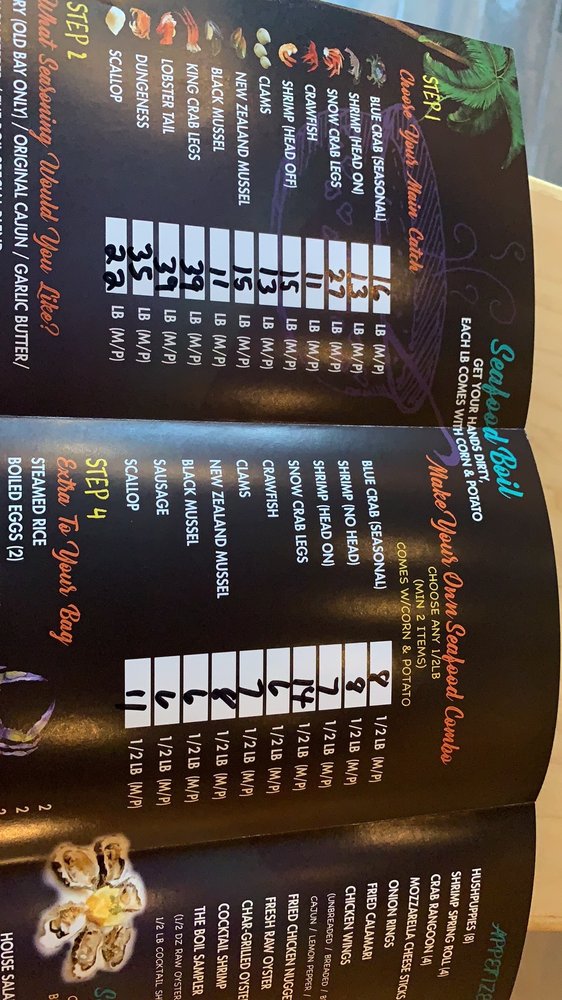 Seafood Boil
GET YOUR HANDS DIRTY,
EACH LB COMES WITH CORN & POTATO
STEP 1
Choose Your Main Catch
BLUE CRAB (SEASONAL) 16 LB (M/P)
SHRIMP (HEAD ON) 13 LB (M/P)
SNOW CRAB LEGS 27 LB (M/P)
CRAWFISH 11 LB (M/P)
SHRIMP (HEAD OFF) 15 LB (M/P)
CLAMS 13 LB (M/P)
NEW ZEALAND MUSSEL 15 LB (M/P)
BLACK MUSSEL 11 LB (M/P)
KING CRAB LEGS 39 LB (M/P)
LOBSTER TAIL 39 LB (M/P)
DUNGENESS 35 LB (M/P)
SCALLOP 22 LB (M/P)
STEP 2
What Seasoning Would You Like?
(OLD BAY ONLY) / ORIGINAL CAJUN / GARLIC BUTTER/
Make Your Own Seafood Combo
CHOOSE ANY 1/2LB
(MIN 2 ITEMS)
COMES W/CORN & POTATO
BLUE CRAB (SEASONAL) 8 1/2 LB (M/P)
SHRIMP (NO HEAD) 8 1/2 LB (M/P)
SHRIMP (HEAD ON) 7 1/2 LB (M/P)
SNOW CRAB LEGS 14 1/2 LB (M/P)
CRAWFISH 6 1/2 LB (M/P)
CLAMS 7 1/2 LB (M/P)
NEW ZEALAND MUSSEL 8 1/2 LB (M/P)
BLACK MUSSEL 6 1/2 LB (M/P)
SAUSAGE 6 1/2 LB (M/P)
SCALLOP 11 1/2 LB (M/P)
STEP 4
Extra To Your Bag
STEAMED RICE 2
BOILED EGGS (2) 2
APPETIZ
HUSHPUPPIES (8)
SHRIMP SPRING ROLL (4)
CRAB RANGOON (4)
MOZZARELLA CHEESE STICK
ONION RINGS
FRIED CALAMARI
CHICKEN WINGS
(UNBREADED / BREADED /
CAJUN / LEMON PEPPER /
FRIED CHICKEN NUGGE
FRESH RAW OYSTER
CHAR-GRILLED OYSTE
COCKTAIL SHRIMP
THE BOIL SAMPLER
(1/2 DZ RAW OYSTER
1/2 LB COCKTAIL SH
HOUSE SALA